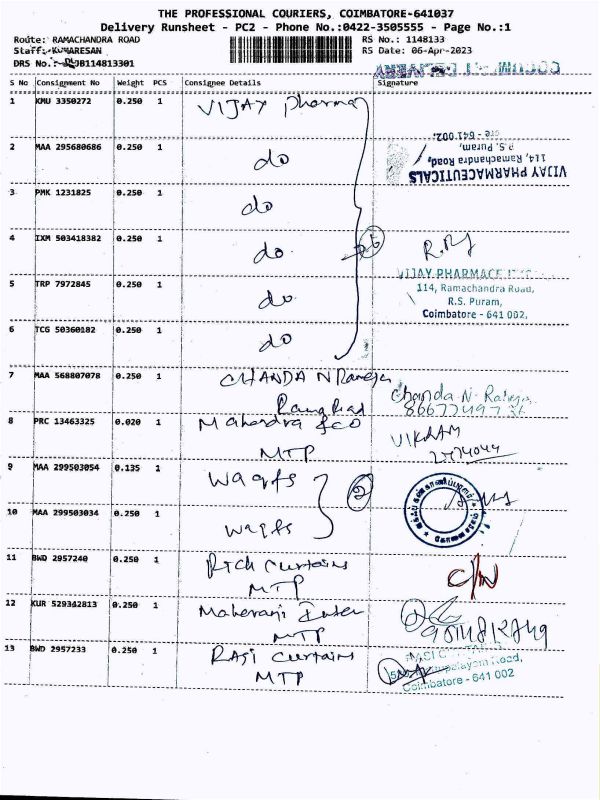 THE PROFESSIONAL COURIERS, COIMBATORE-641037
Delivery Runsheet - PC2 - Phone No.:0422-3505555 - Page No.:1
Route: RAMACHANDRA ROAD RS No.: 1148133
Staff:-KUMARESAN RS Date: 06-Apr-2023
DRS No.:- B114813301
S No Consignment No Weight PCS Consignee Details Signature
1 KMU 3350272 0.250 1 VIJAY pharma
2 MAA 295680686 0.250 1 do
VIJAY PHARMACEUTICALS
114, Ramachandra Road,
R.S. Puram,
ore - 641 002.
3 PMK 1231825 0.250 1 do
4 IXM 503418382 0.250 1 do 6 R.Rj
VIJAY PHARMACE
114, Ramachandra Road,
R.S. Puram,
Coimbatore - 641 002.
5 TRP 7972845 0.250 1 do
6 TCG 50360182 0.250 1 do
7 MAA 568807078 0.250 1 CHANDA N Raheja
Chanda N. Raheja
8 PRC 13463325 0.020 1 Mahendra &CO
MTP
VIKRAM
2474044
9 MAA 299503054 0.135 1 waqfs 2
10 MAA 299503034 0.250 1 waqfs
11 BWD 2957240 0.250 1 Rich Curtains
MTP
12 KUR 529342813 0.250 1 Maharani Enter
MTP
13 BWD 2957233 0.250 1 RASI Curtains
MTP
RASI
Road,
Coimbatore - 641 002